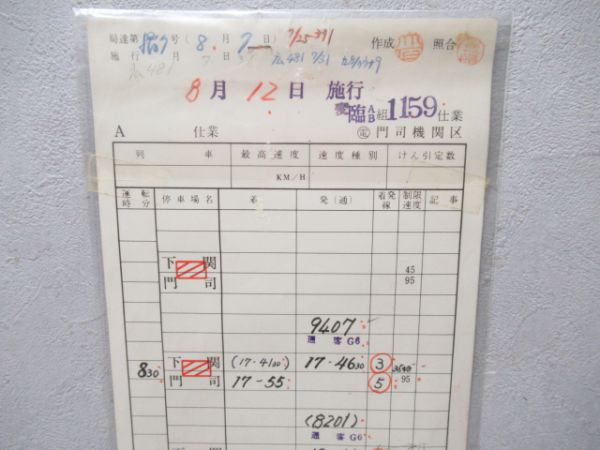 局達第 号 (8.月7日) 7/25-391 作成 照合
施行 月 日 広481 7/31
8月12日 施行
変臨AB組1159仕業
A 仕業 ㊣門司機関区
列車 最高速度 速度種別 けん引定数
KM/H
運転時分 停車場名 着 発(通) 着発線 制限速度 記事
下関 45
門司 95
9407
通客G6
830 下関 (17-4100) 17-4630 3
門司 17-55 5 95
(8201)
通客G6